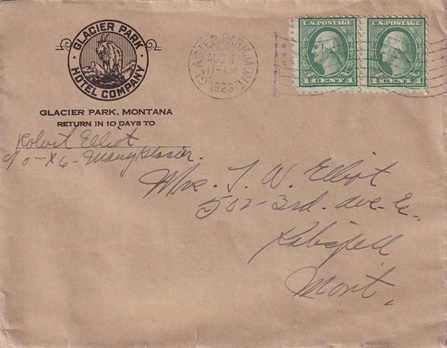 GLACIER PARK
HOTEL COMPANY
GLACIER PARK, MONTANA
RETURN IN 10 DAYS TO
Robert Elliot
c/o
GLACIER PARK, MONT.
AUG 4
11 - AM
1923
U.S. POSTAGE
1 CENT 1
U.S. POSTAGE
1 CENT 1
Mrs. T. W. Elliot
502-3rd. ave. E.
Kalispell
Mont.